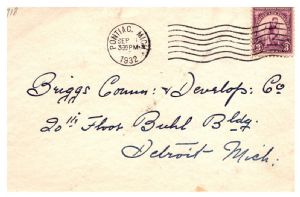 918
PONTIAC, MICH.
SEP
3 30 PM
1932
3
Briggs Comm: & Develop: Co
20th Floor Buhl Bldg.
Detroit Mich.